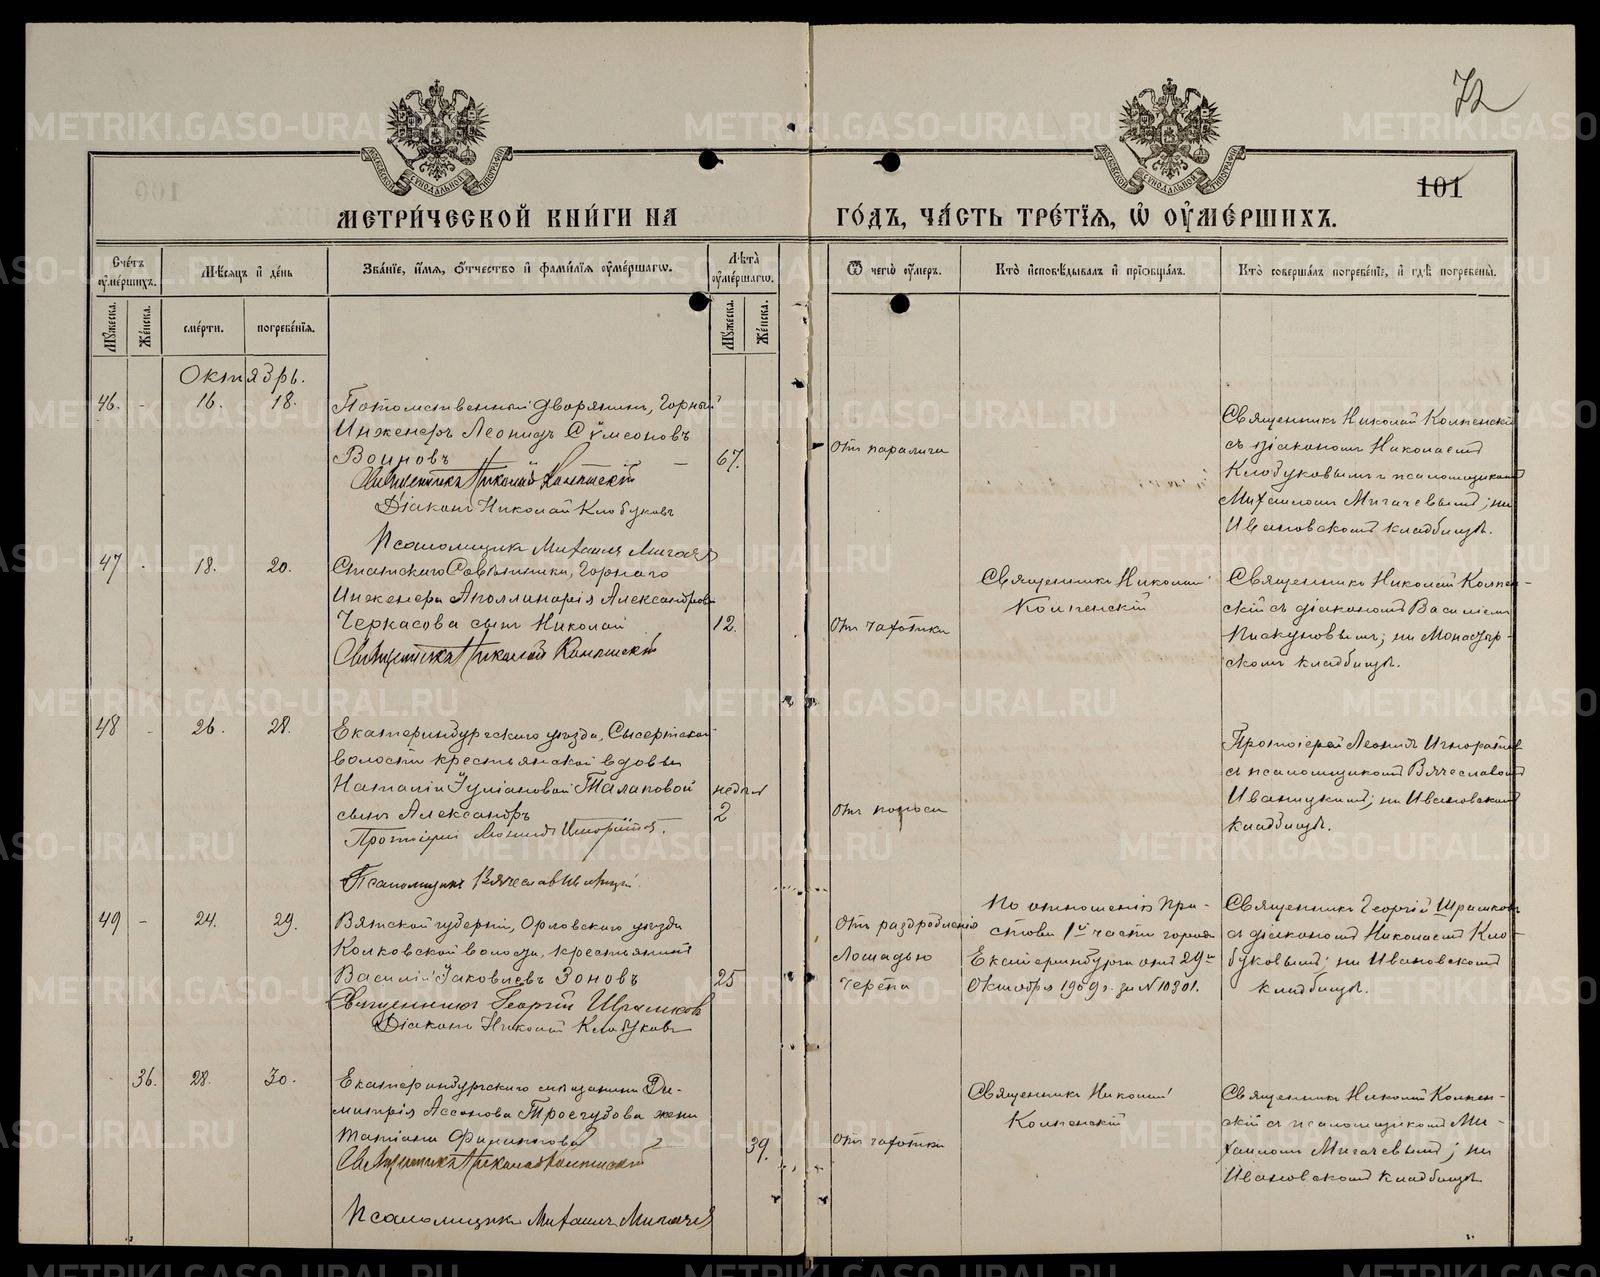 72
101
МОСКОВСКОЙ СУНОДАЛЬНОЙ ТИПОГРАФІИ
МОСКОВСКОЙ СУНОДАЛЬНОЙ ТИПОГРАФІИ
МЕТРИ́ЧЕСКОЙ КНИ́ГИ НА
ГО́ДЪ, ЧА́СТЬ ТРЕ́ТІѦ, Ѡ ОУМЕ́РШИХЪ.
Сче́тъ оумершихъ.
Мѣсяцъ и де́нь
Зва́нїе, и́мя, о́тчество и фами́лїя оуме́ршагѡ.
Лѣта̀ оуме́ршагѡ.
Ѿ чегѡ̀ оу́меръ.
Кто̀ исповѣ́дывалъ и прїобща́лъ.
Кто̀ соверша́лъ погребе́нїе, и гдѣ̀ погребены̀.
Мꙋ́жеска.
Же́нска.
сме́рти.
погребе́нїя.
Мꙋ́жеска.
Же́нска.
Октябрь.
46. - 16. 18.
Потомственный дворянинъ, Горный
Инженеръ Леонидъ Сѵмеоновъ
Воиновъ
67.
Священникъ Николай Колпенскій
Діаконъ Николай Клобуковъ
Псаломщикъ Михаилъ Мигачевъ
отъ паралича
Священникъ Николай Колпенскій
съ діакономъ Николаемъ
Клобуковымъ и псаломщикомъ
Михаиломъ Мигачевымъ; на
Ивановскомъ кладбищѣ.
47 - 18. 20.
Статскаго Совѣтника, Горнаго
Инженера Аполлинарія Александрова
Черкасова сынъ Николай
12.
Священникъ Николай Колпенскій
отъ чахотки
Священникъ Николай
Колпенскій
Священникъ Николай Колпен-
скій съ діакономъ Василіемъ
Пискуновымъ; на Монастыр-
скомъ кладбищѣ.
48 - 26. 28.
Екатеринбургскаго уѣзда, Сысертской
волости крестьянской вдовы
Наталіи Іуліановой Талаповой
сынъ Александръ
недѣл
2
Протоіерей Леонидъ Игноратовъ.
Псаломщикъ Вячеславъ Иваницкій
отъ поноса
Протоіерей Леонидъ Игноратовъ
съ псаломщикомъ Вячеславомъ
Иваницкимъ; на Ивановскомъ
кладбищѣ.
49 - 24. 29.
Вятской губерніи, Орловскаго уѣзда
Колковской волости, крестьянинъ
Василій Іаковлевъ Зоновъ
25
Священникъ Георгій Шрамковъ
Діаконъ Николай Клобуковъ
отъ раздробленія
лошадью
черепа
По отношенію При-
става 1й части города
Екатеринбурга отъ 29го
Октября 1909 г. за № 10301.
Священникъ Георгій Шрамковъ
съ діакономъ Николаемъ Кло-
буковымъ; на Ивановскомъ
кладбищѣ.
36. 28. 30.
Екатеринбургскаго мѣщанина Ди-
митрія Ассонова Троегубова жена
Татіана Филиппова
39.
Священникъ Николай Колпенскій
Псаломщикъ Михаилъ Мигачевъ
отъ чахотки
Священникъ Николай
Колпенскій
Священникъ Николай Колпен-
скій съ псаломщикомъ Ми-
хаиломъ Мигачевымъ; на
Ивановскомъ кладбищѣ.
METRIKI.GASO-URAL.RU